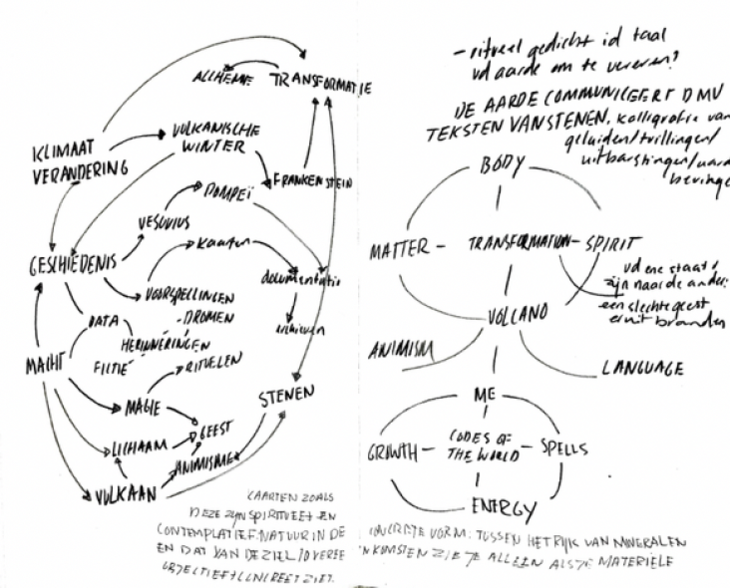 ALCHEMIE TRANSFORMATIE
KLIMAAT
VERANDERING
VULKANISCHE
WINTER
FRANKENSTEIN
POMPEÏ
VESUVIUS
GESCHIEDENIS
kaarten
documentatie
VOORSPELLINGEN
-DROMEN
DATA
HERINNERINGEN
FICTIE
archieven
MACHT
RITUELEN
MAGIE
STENEN
GEEST
LICHAAM
ANIMISME
VULKAAN
KAARTEN ZOALS
DEZE ZIJN SPIRITUEEL EN
CONTEMPLATIEF: NATUUR IN DE
EN DAT VAN DE ZIEL
- ritueel gedicht id taal
vd aarde om te vereren?
DE AARDE COMMUNICEERT DMV
TEKSTEN VAN STENEN. kalligrafie van
geluiden/trillingen/
uitbarstingen/aard
bevingen
BODY
MATTER - TRANSFORMATION - SPIRIT
vd ene staat
zijn naar de ander:
een slechte geest
eruit branden
VOLCANO
ANIMISM
LANGUAGE
ME
GROWTH - CODES OF - SPELLS
THE WORLD
ENERGY
CONCRETE VORM: TUSSEN HET RIJK VAN MINERALEN
ZIE JE ALLEEN ALS JE MATERIËLE